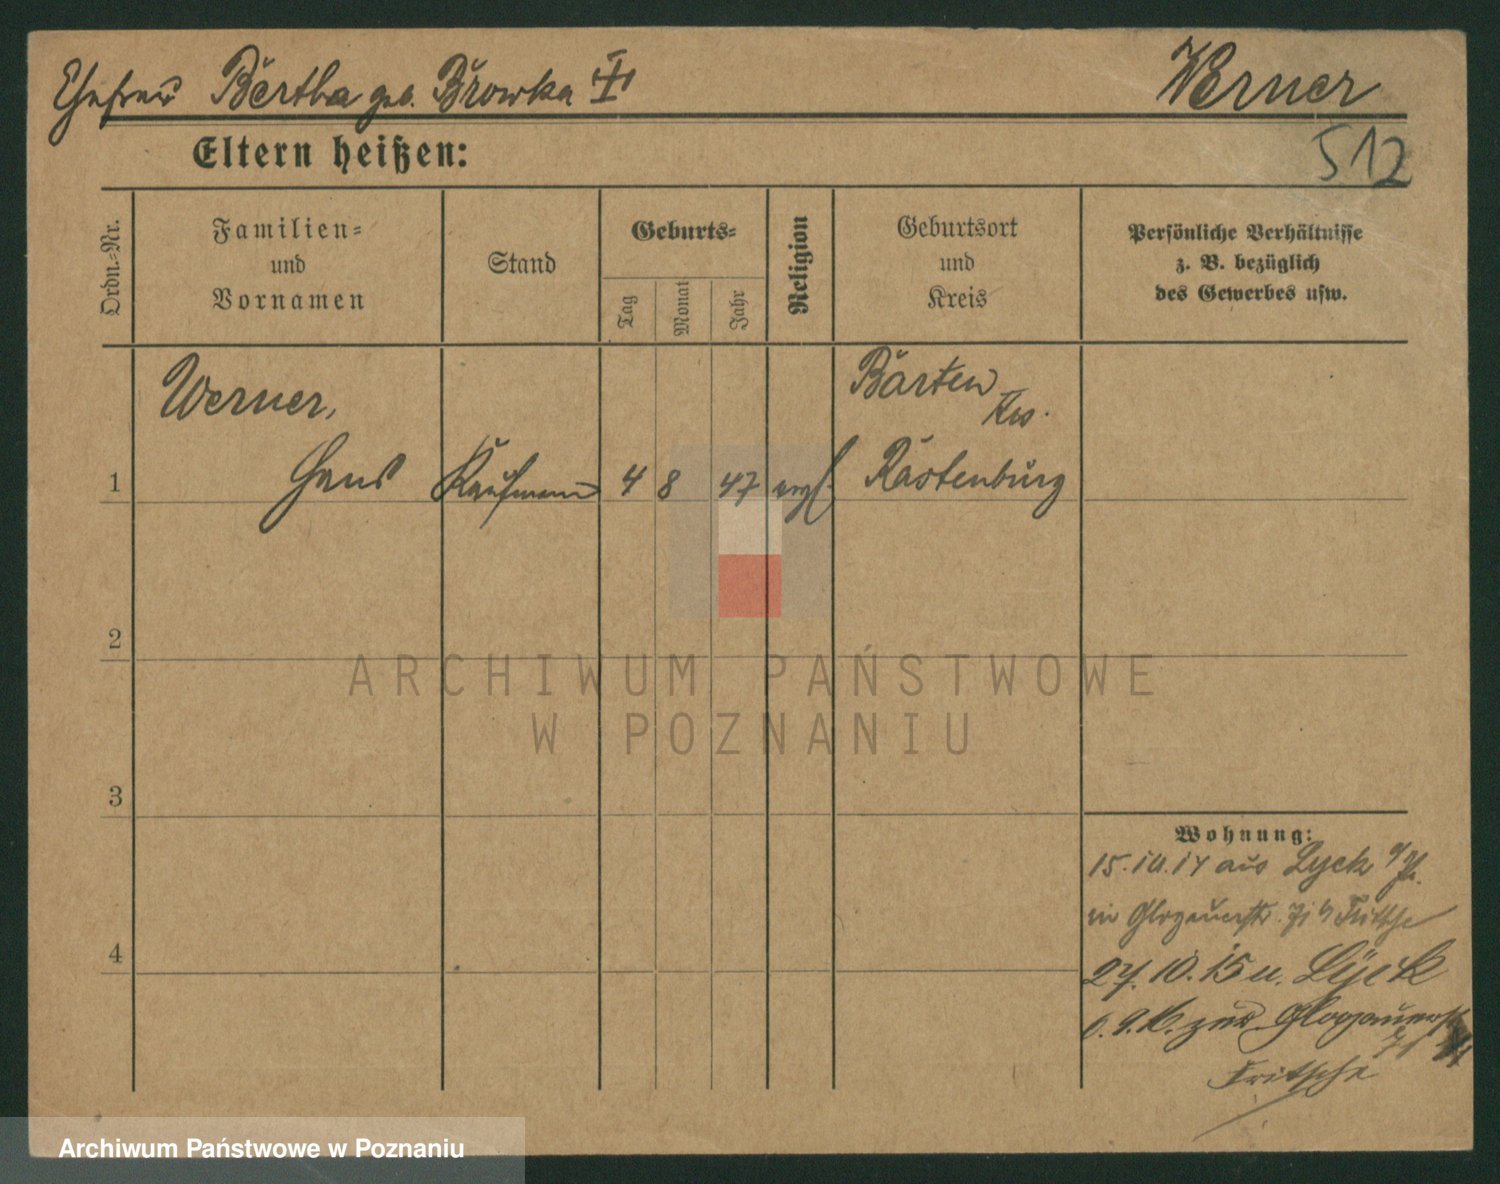 Ehefrau Bertha geb. Browka
Werner
512
Eltern heißen:
Ordn.-Nr.
Familien-
und
Vornamen
Stand
Geburts-
Tag
Monat
Jahr
Religion
Geburtsort
und
Kreis
Persönliche Verhältnisse
z. B. bezüglich
des Gewerbes usw.
Werner,
Hans
Kaufmann
4
8
47
evgl.
Barten
Krs.
Rastenburg
1
2
3
4
Wohnung:
15.10.14 aus Lyck
in Glogauerstr. Fritsche
27.10.15 n. Lyck
6.9.16. zur. Glogauerstr
Fritsche
ARCHIWUM PAŃSTWOWE
W POZNANIU
Archiwum Państwowe w Poznaniu